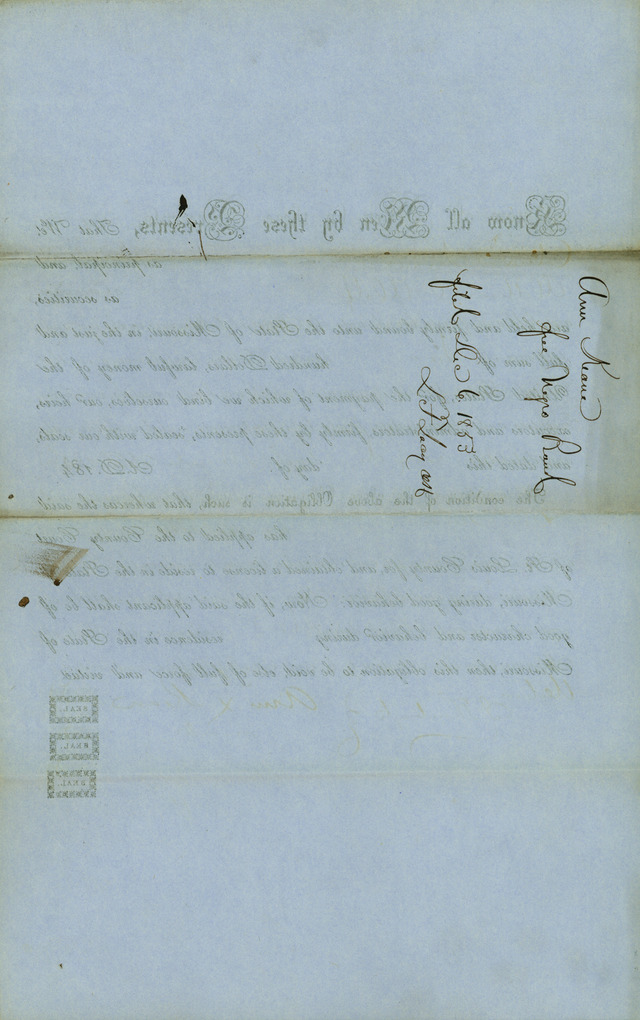 Ann
free Negro Bond
filed Dec 6 1853
Know all Men by these Presents, That We
as principal, and
as securities,
and firmly bound unto the State of Missouri, in the just and
sum of hundred Dollars, lawful money of the
the payment of which we bind ourselves, our heirs,
executors and firmly by these presents, sealed with our seals,
and dated this day of A. D. 184
The condition of the above Obligation is such, that whereas the said
has applied to the County Court
of St. Louis County for, and obtained a license to reside in the State of
Missouri, during good behavior: Now, if the said applicant shall be of
good character and behavior during residence in the State of
Missouri, then this obligation to be void, else of full force and virtue.
SEAL.
SEAL.
SEAL.